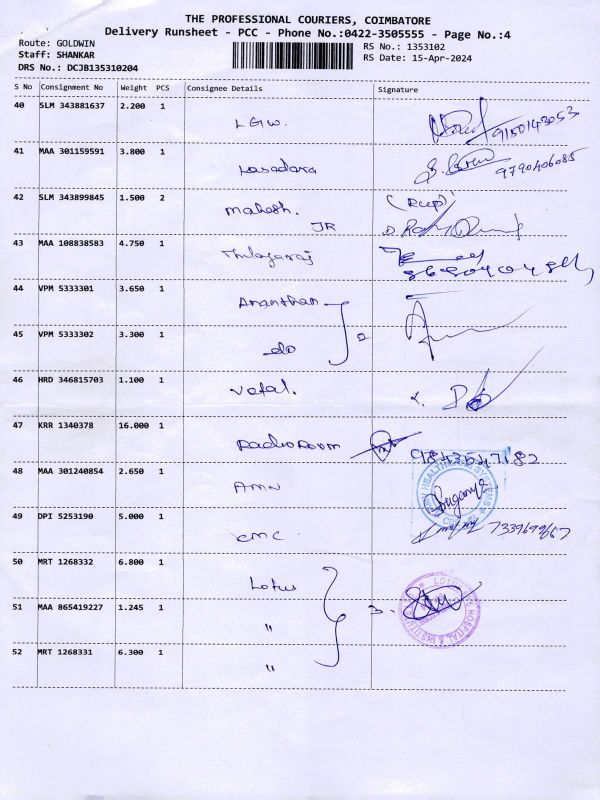 THE PROFESSIONAL COURIERS, COIMBATORE
Delivery Runsheet - PCC - Phone No.:0422-3505555 - Page No.:4
Route: GOLDWIN
RS No.: 1353102
Staff: SHANKAR
RS Date: 15-Apr-2024
DRS No.: DCJB135310204
S No Consignment No Weight PCS Consignee Details Signature
40 SLM 343881637 2.200 1
LGW. 9150143053
41 MAA 301159591 3.800 1
Lasadara 9790406085
42 SLM 343899845 1.500 2
Mahesh. JR
43 MAA 108838583 4.750 1
Thulagaraj
44 VPM 5333301 3.650 1
Ananthan
45 VPM 5333302 3.300 1
do 2
46 HRD 346815703 1.100 1
47 KRR 1340378 16.000 1
Radio Room 9843547182
48 MAA 301240854 2.650 1
AMN Suganya
HEALTHCARE SYSTEMS
49 DPI 5253190 5.000 1
CMC 7339699667
50 MRT 1268332 6.800 1
Lotus
51 MAA 865419227 1.245 1
"
LOTUS EYE HOSPITAL & INSTITUTE
52 MRT 1268331 6.300 1
"